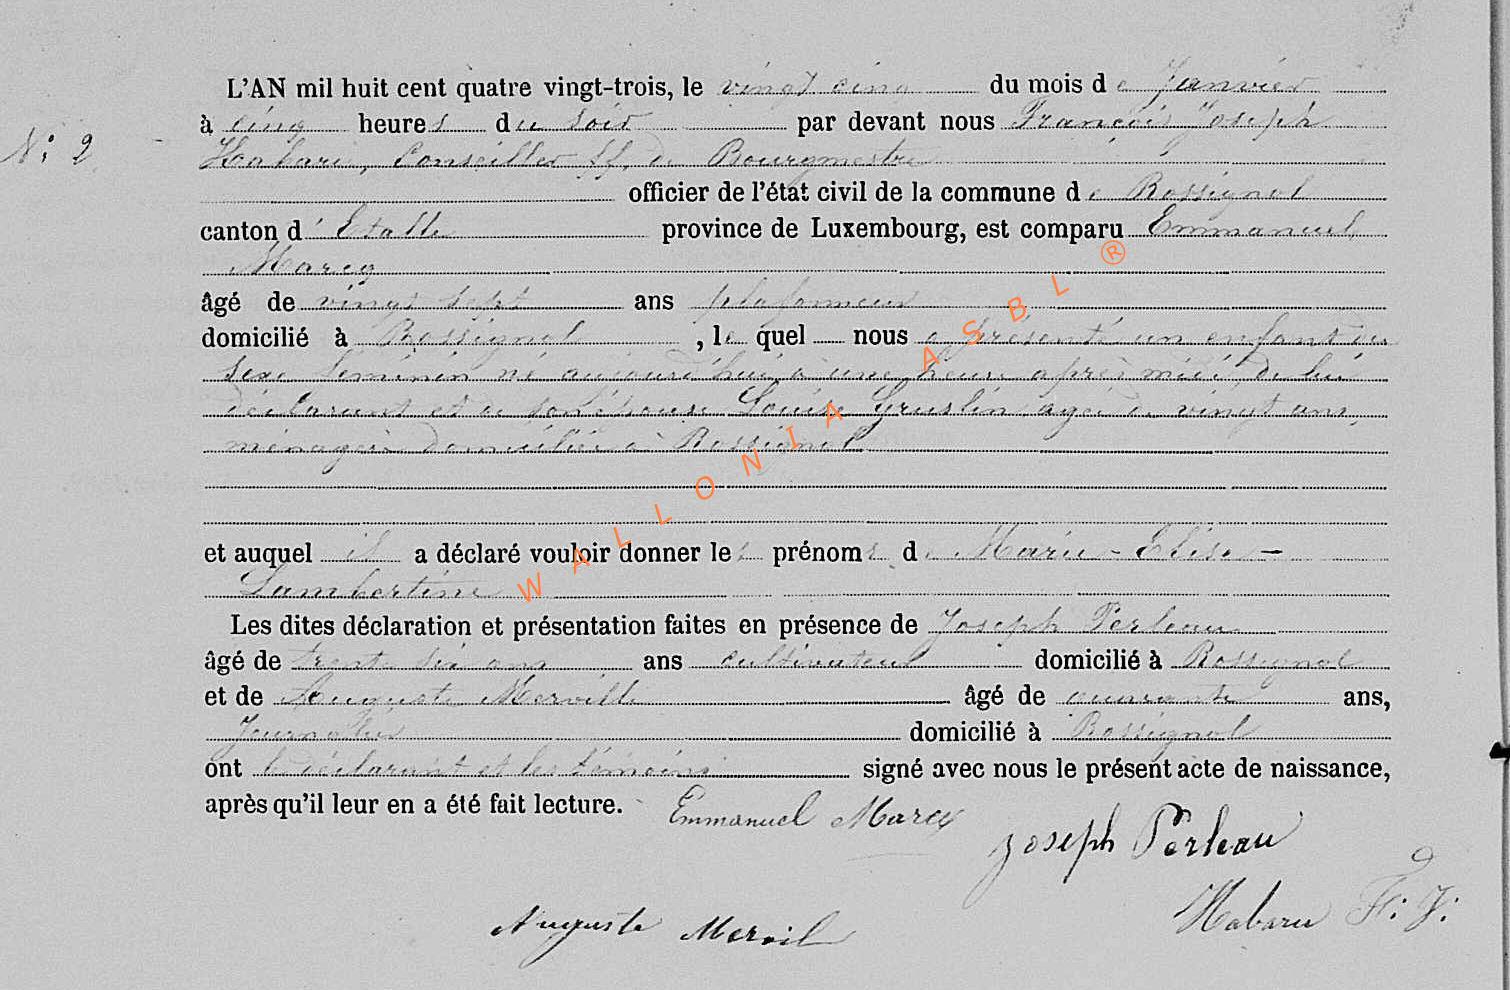 L'AN mil huit cent quatre vingt-trois, le vingt cinq du mois de Janvier
N: 2 à cinq heures du soir par devant nous François Joseph
Habaru, Conseiller ff. de Bourgmestre
officier de l'état civil de la commune de Rossignol
canton d'Etalle province de Luxembourg, est comparu Emmanuel
Marcq
âgé de vingt sept ans plafonneur
domicilié à Rossignol , le quel nous a présenté un enfant du
sexe féminin né aujourd'hui à une heure après midi, de lui
déclarant et de son épouse Louise Gruslin agée de vingt ans,
ménagère domiciliée à Rossignol
et auquel il a déclaré vouloir donner les prénoms de Marie-Elise-
Lambertine
Les dites déclaration et présentation faites en présence de Joseph Perleau
âgé de trente six ans ans cultivateur domicilié à Rossignol
et de Auguste Merville âgé de quarante ans,
Journalier domicilié à Rossignol
ont le déclarant et les témoins signé avec nous le présent acte de naissance,
après qu'il leur en a été fait lecture. Emmanuel Marcq
Joseph Perleau
Habaru F: J:
Auguste Mervil
WALLONIA ASBL ®